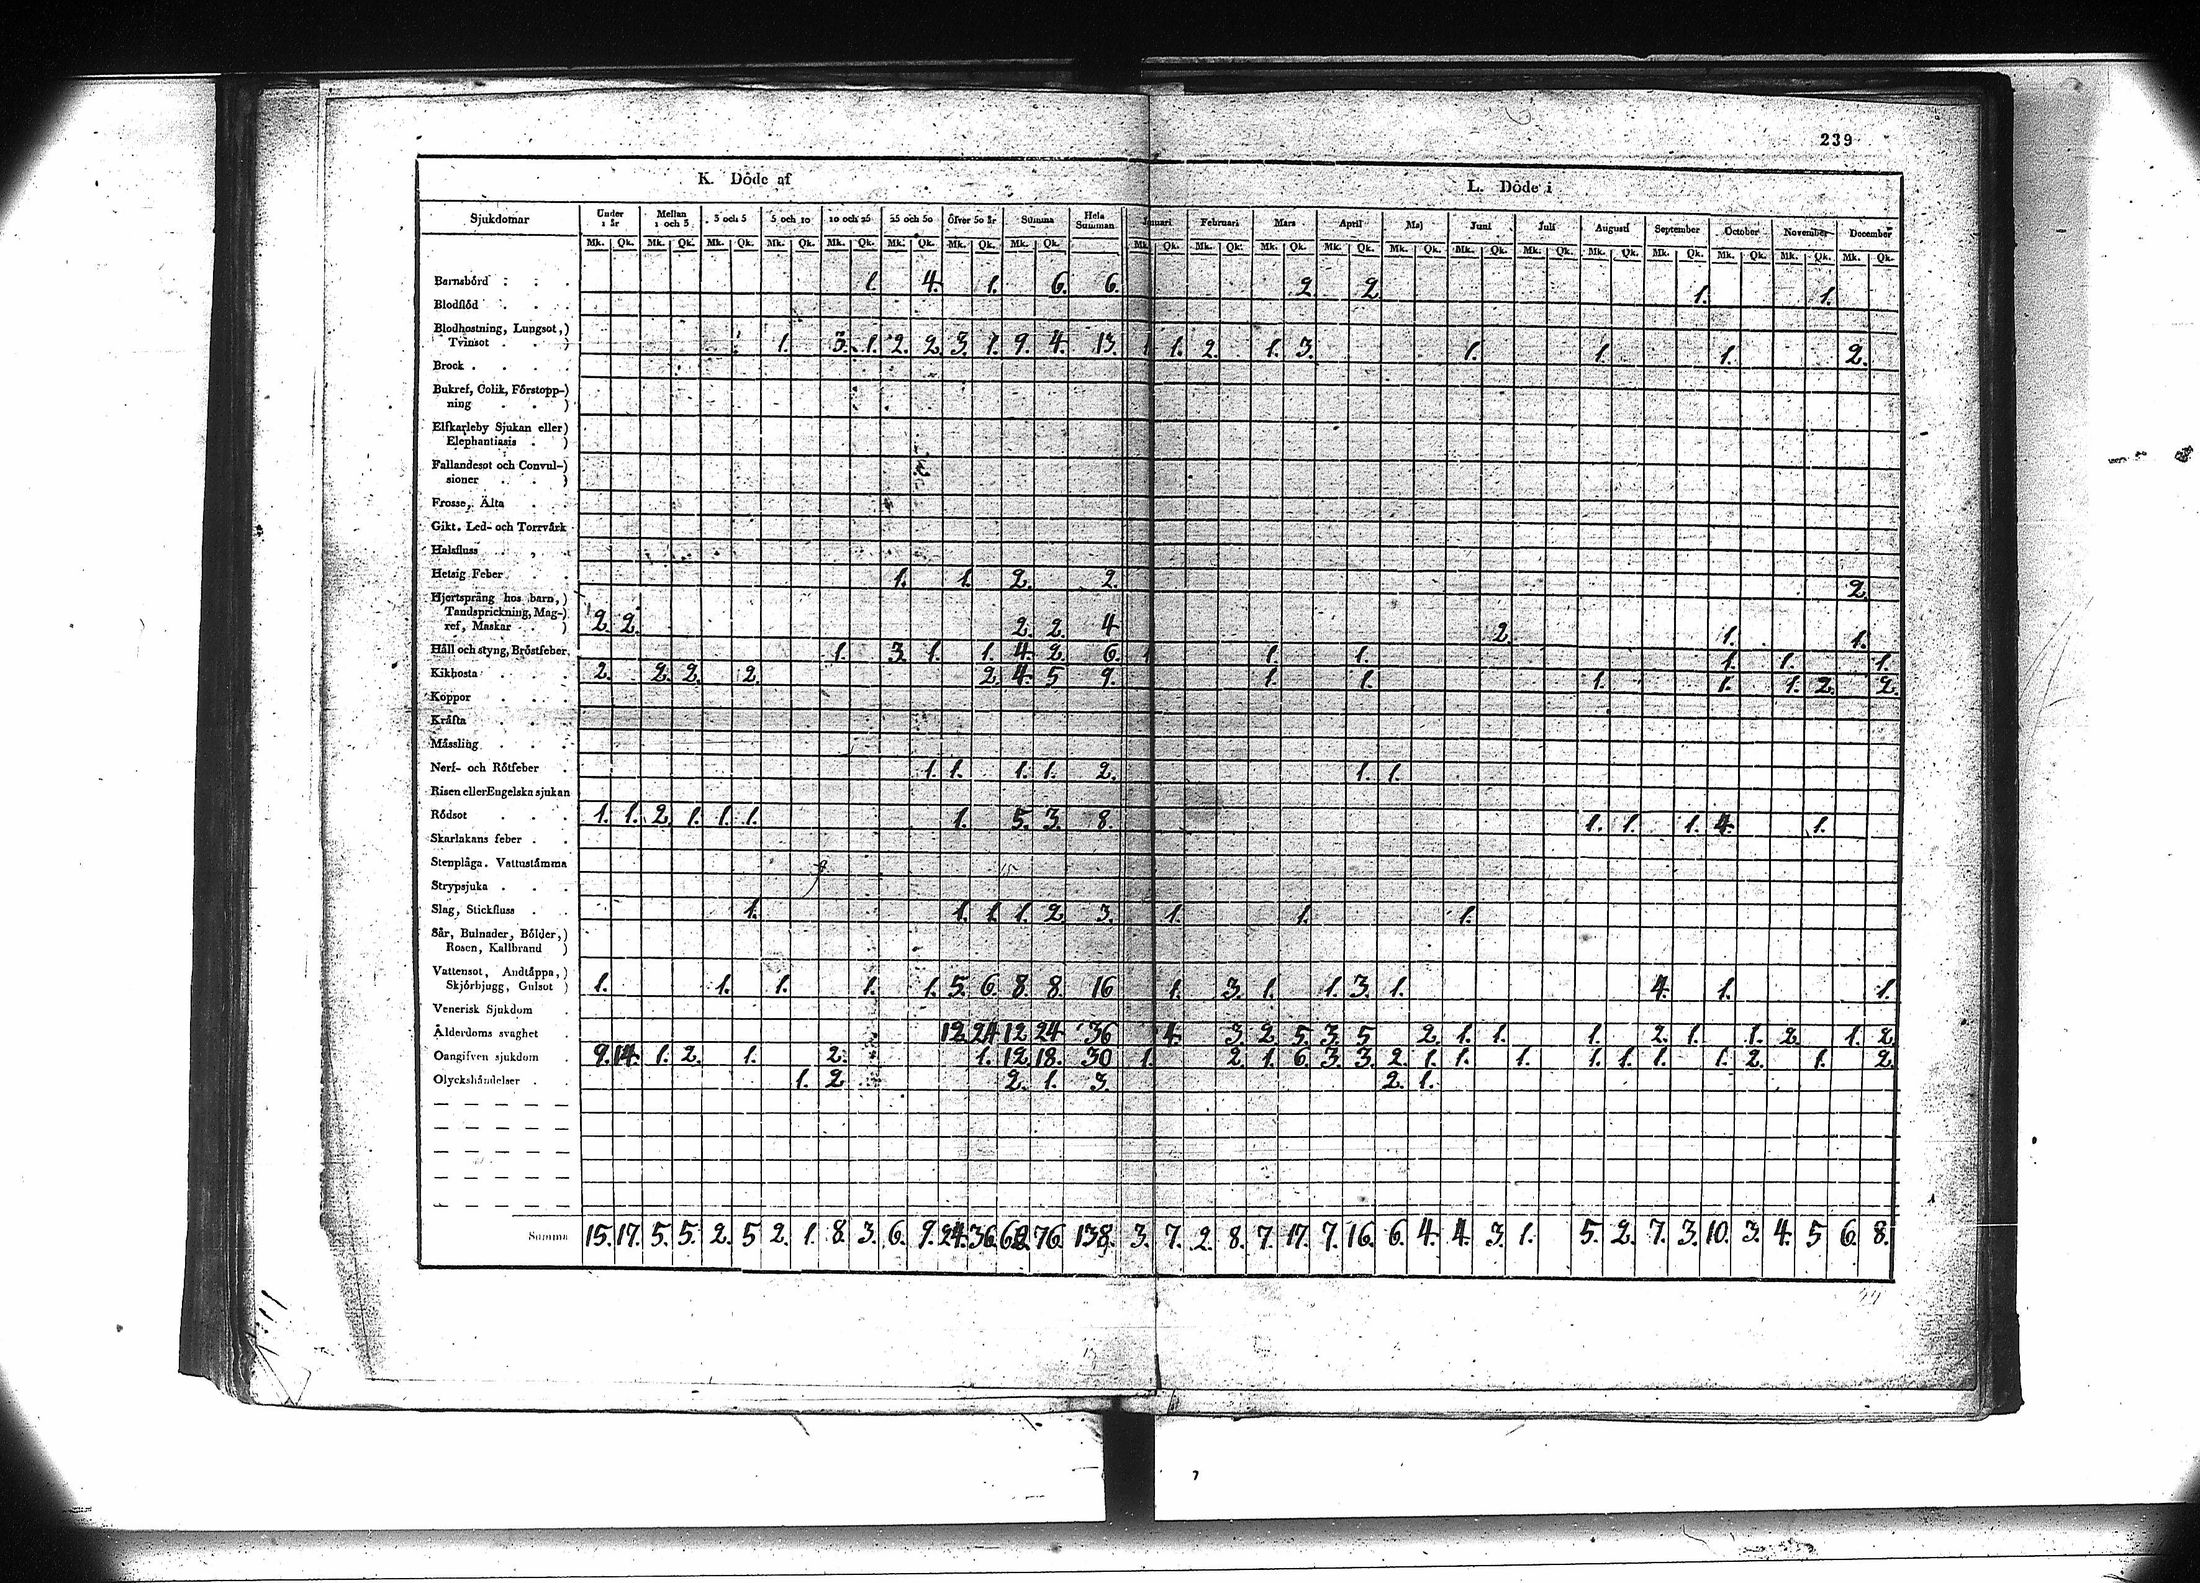 239
K. Döde af L. Döde i
Sjukdomar Under 1 år Mellan 1 och 3 3 och 5 5 och 10 10 och 25 25 och 50 Öfver 50 år Summa Hela Summan Januari Februari Mars April Maj Juni Juli Augusti September October November December
Mk. Qk. Mk. Qk. Mk. Qk. Mk. Qk. Mk. Qk. Mk. Qk. Mk. Qk. Mk. Qk. Mk. Qk. Mk. Qk. Mk. Qk. Mk. Qk. Mk. Qk. Mk. Qk. Mk. Qk. Mk. Qk. Mk. Qk. Mk. Qk. Mk. Qk. Mk. Qk.
Barnsbörd 1. 4. 1. 6. 6. 2 2 1. 1.
Blodflöd
Blodhostning, Lungsot,)
Tvinsot ) 1. 3. 1. 2. 2. 3. 1. 9. 4. 13. 1 1. 2. 1. 3. 1. 1. 1. 2.
Brock
Bukref, Colik, Förstopp-)
ning )
Elfkarleby Sjukan eller)
Elephantiasis )
Fallandesot och Convul-)
sioner )
Frosse, Älta
Gikt. Led- och Torrvärk
Halsfluss
Hetsig Feber 1. 1. 2. 2. 2.
Hjertsprång hos barn,)
Tandsprickning, Mag-)
ref, Maskar ) 2. 2. 2. 2. 4 2. 1. 1.
Håll och styng, Bröstfeber. 1. 3. 1. 1. 4. 2. 6. 1 1. 1. 1. 1. 1.
Kikhosta 2. 2. 2. 2. 2. 4. 5 9. 1. 1. 1. 1. 1. 2. 2.
Koppor
Kräfta
Mässling
Nerf- och Rötfeber 1. 1. 1. 1. 2. 1. 1.
Risen eller Engelska sjukan
Rödsot 1. 1. 2. 1. 1. 1. 1. 5. 3. 8. 1. 1. 1. 4. 1.
Skarlakans feber
Stenplåga. Vattustämma
Strypsjuka
Slag, Stickfluss 1. 1. 1. 1. 2. 3. 1. 1. 1.
Sår, Bulnader, Bölder,)
Rosen, Kallbrand )
Vattensot, Andtäppa,)
Skjörbjugg, Gulsot ) 1. 1. 1. 1. 1. 5. 6. 8. 8. 16 1. 3. 1. 1. 3. 1. 4. 1. 1.
Venerisk Sjukdom
Ålderdoms svaghet 12 24 12 24 36 4. 3. 2. 5. 3. 5 2. 1. 1. 1. 2. 1. 1. 2. 1. 2.
Oangifven sjukdom 9. 14. 1. 2. 1. 2. 1. 12 18. 30 1. 2. 1. 6. 3. 3. 2. 1. 1. 1. 1. 1. 1. 1. 2. 1. 2.
Olyckshändelser 1. 2. 2. 1. 3. 2. 1.
Summa 15. 17. 5. 5. 2. 5 2. 1. 8. 3. 6. 9. 24. 36. 62 76. 138. 3. 7. 2. 8. 7. 17. 7. 16. 6. 4. 4. 3. 1. 5. 2. 7. 3. 10. 3. 4. 5 6. 8.